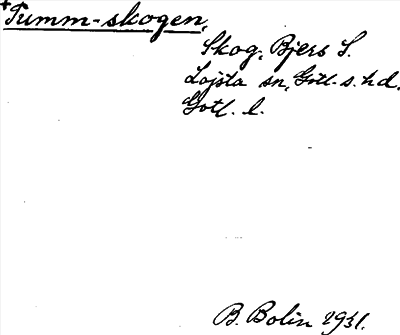 +Tumm-skogen,
Skog, Bjers S.
Lojsta sn, Gotl. s. hd.
Gotl. l.
B. Bolin 1931.